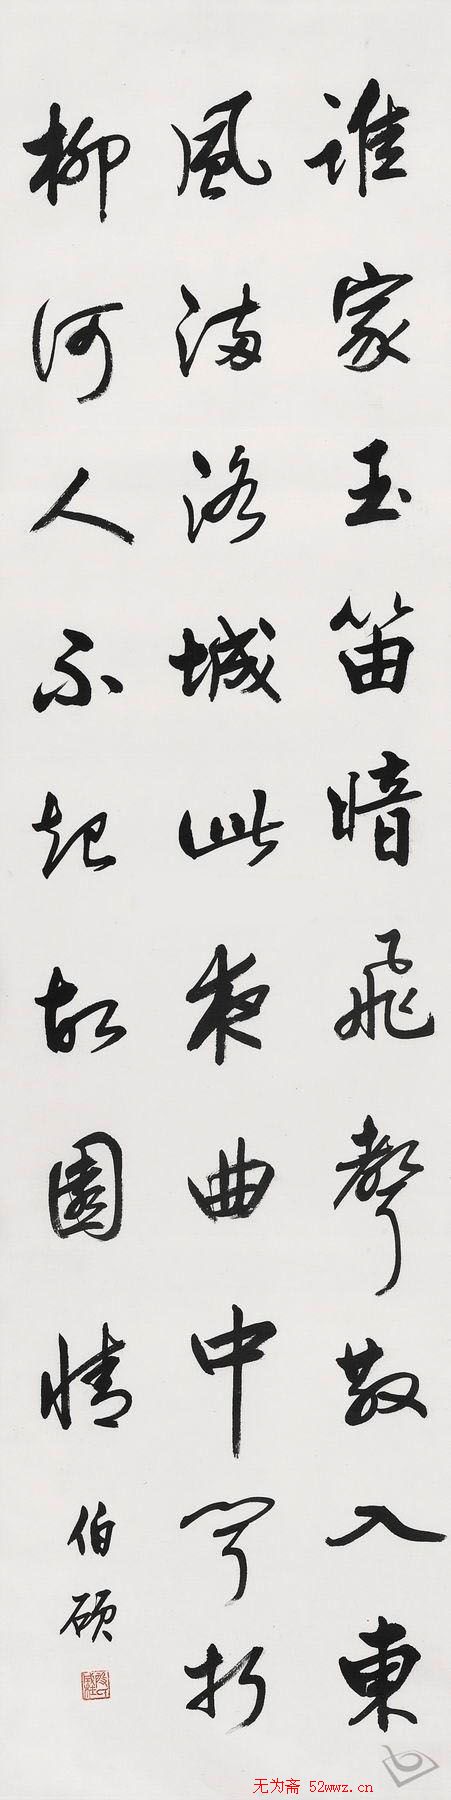 誰家玉笛暗飛聲散入東
風滿洛城此夜曲中聞折
柳何人不起故園情
伯碩
无为斋 52wwz.cn